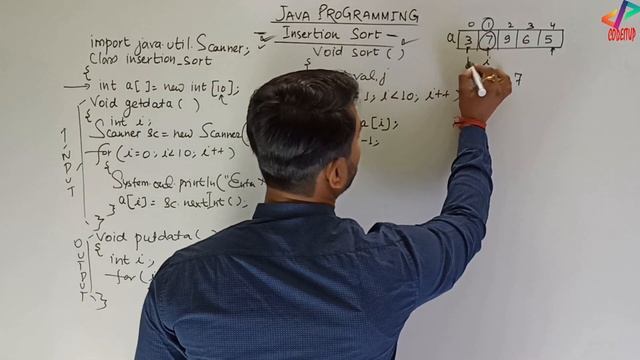 JAVA PROGRAMMING
Insertion Sort
import java.util.Scanner;
Class insertion_sort
{
int a[] = new int [10];
Void getdata()
{
int i;
Scanner sc = new Scanner(
for (i=0; i<10; i++)
{
System.out.println("Enter
a[i] = sc.nextInt();
}
}
Void putdata()
{
int i;
for (
}
INPUT
OUTPUT
Void sort()
{
val,j
1; i<10; i++
a[i];
-1;
0 1 2 3 4
a 3 7 9 6 5
i
7
CODEITUP